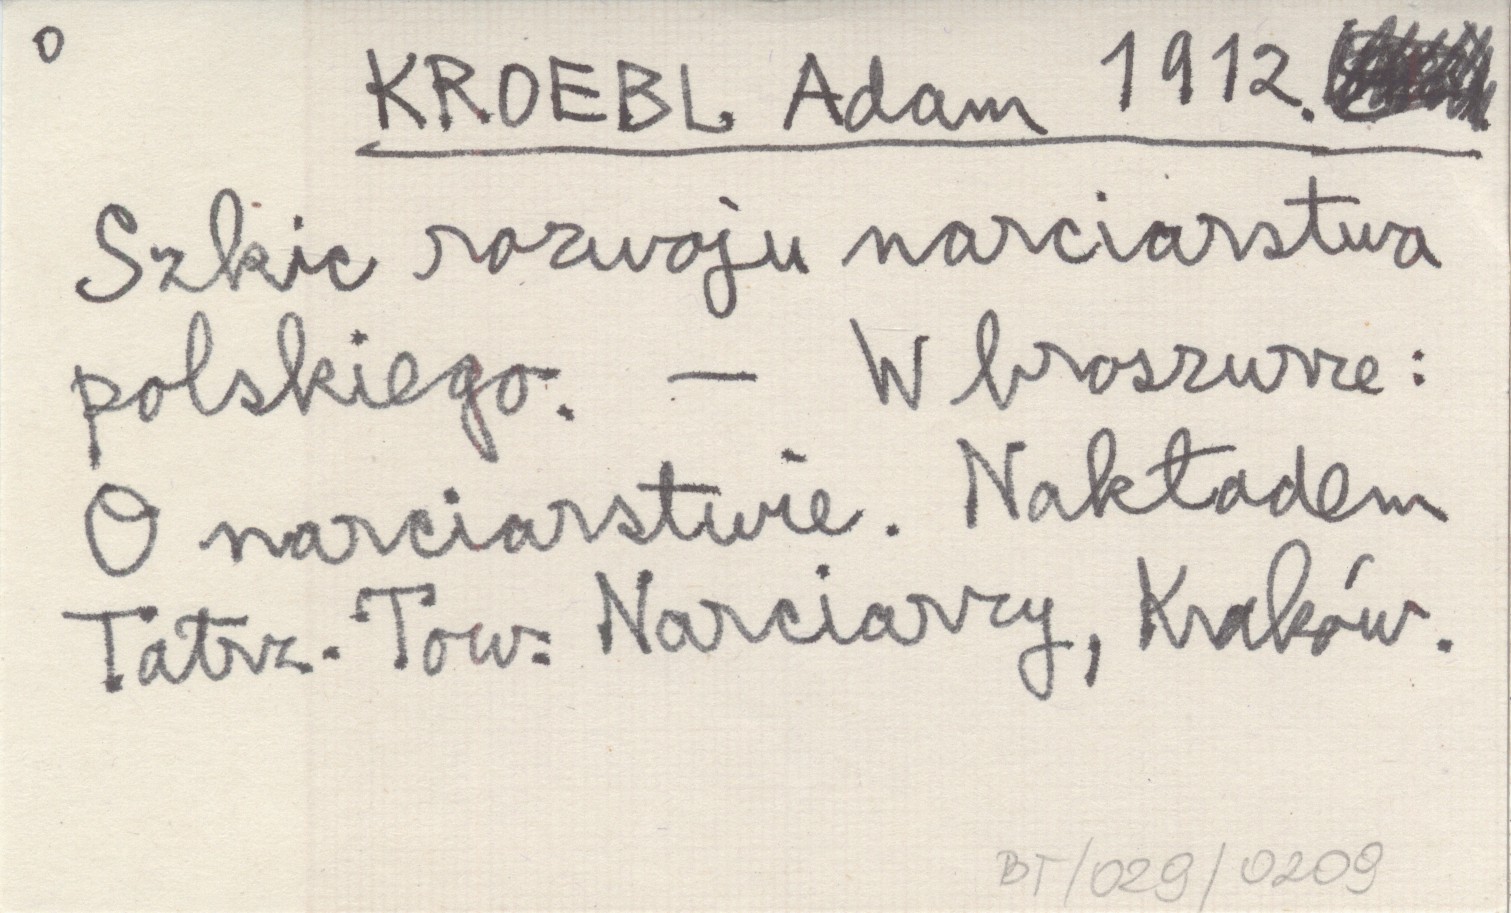 o
KROEBL Adam 1912.
Szkic rozwoju narciarstwa
polskiego. — W broszurze:
O narciarstwie. Nakładem
Tatrz. Tow. Narciarzy, Kraków.
BT/029/0209